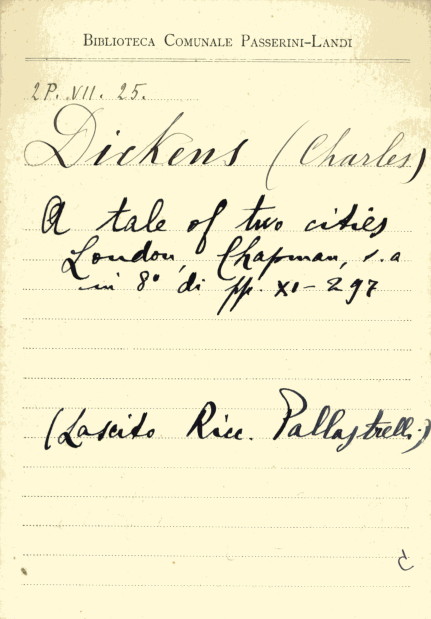 BIBLIOTECA COMUNALE PASSERINI-LANDI
2P. VII. 25.
Dickens (Charles)
A tale of two cities
London, Chapman, s.a
in 8° di pp. XI-297
(Lascito Ricc. Pallastrelli)